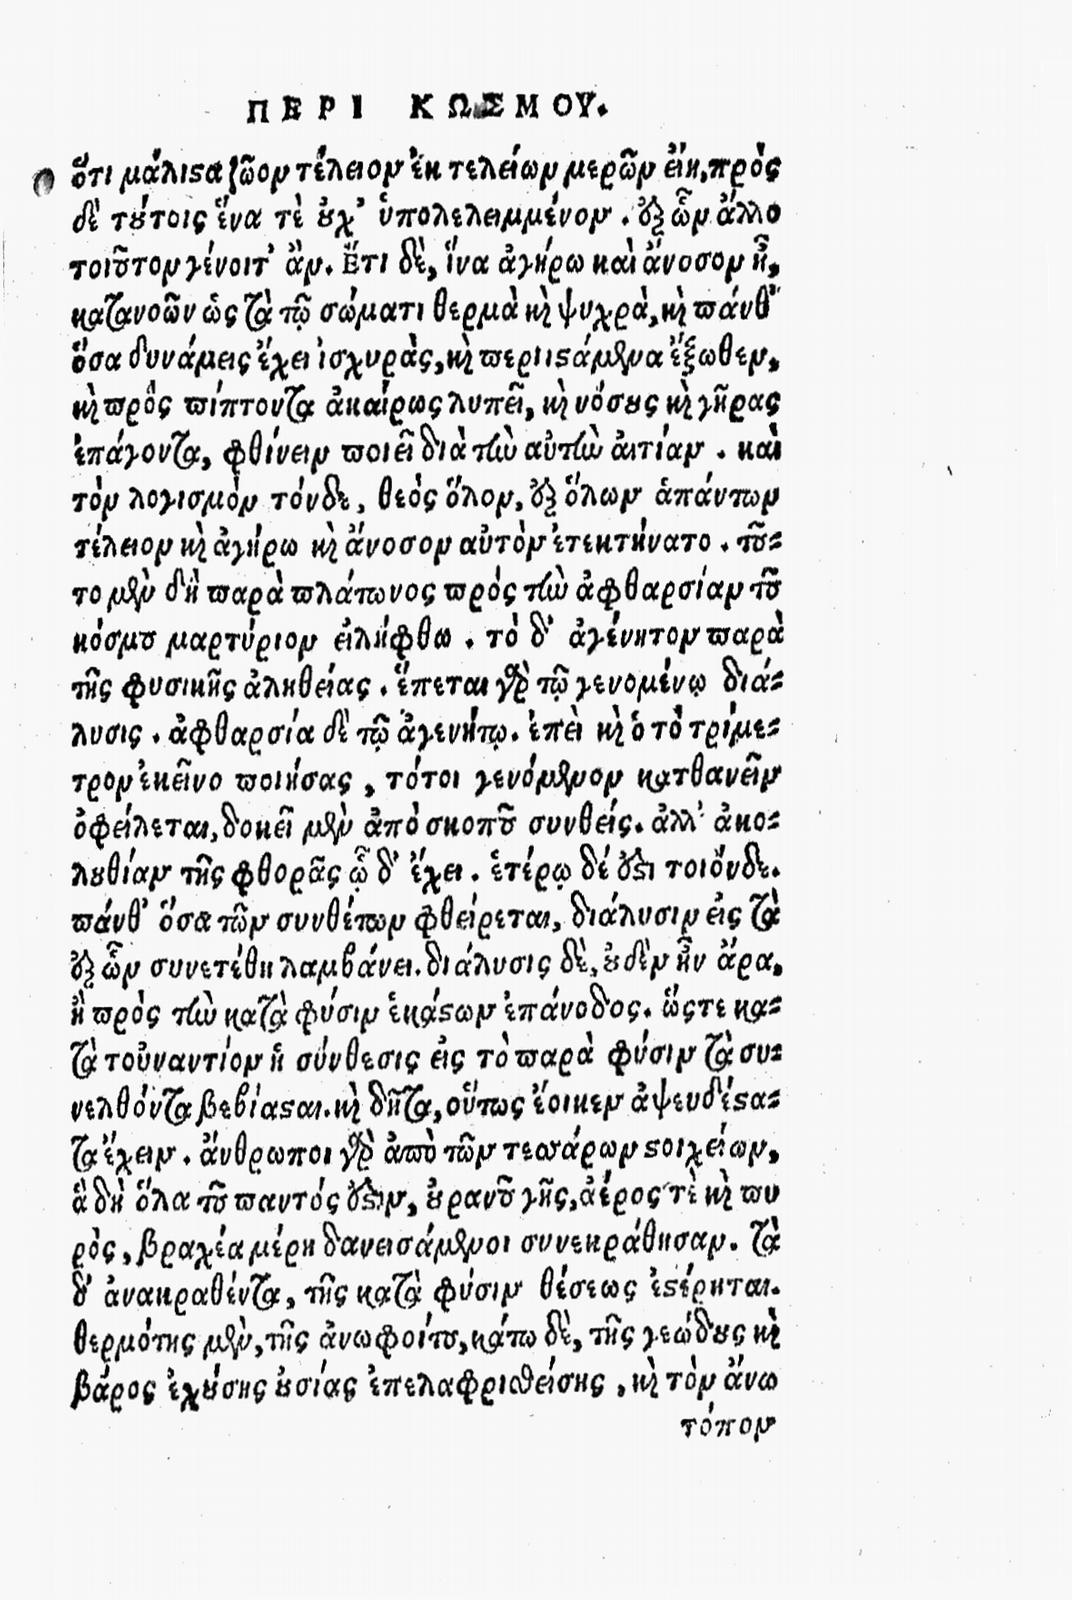 ΠΕΡΙ ΚΩΣΜΟΥ.
ὅτι μάλιϛα ζῶον τέλειον ἐκ τελείων μερῶν εἴη, πρὸς
δὲ τούτοις ἕνα τὲ οὐχ' ὑπολελειμμένον . ἐξ ὧν ἄλλο
τοιοῦτον γένοιτ' ἂν. Ἔτι δὲ, ἵνα ἀγήρω καὶ ἄνοσον ᾖ,
κατανοῶν ὡς τὰ τῷ σώματι θερμὰ κὴ ψυχρὰ, κὴ πάνθ'
ὅσα δυνάμεις ἔχει ἰσχυρὰς, κὴ περιισάμενα ἔξωθεν,
κὴ πρὸς πίπτοντα ἀκαίρως λυπεῖ, κὴ νόσους κὴ γῆρας
ἐπάγοντα, φθίνειν ποιεῖ διὰ τὴν αὐτὴν ἀιτίαν . καὶ
τὸν λογισμὸν τόνδε, θεός ὅλον, ἐξ ὅλων ἁπάντων
τέλειον κὴ ἀγήρω κὴ ἄνοσον αὐτὸν ἐτεκτήνατο . τοῦ-
το μὲν δὴ παρὰ πλάτωνος πρός τὴν ἀφθαρσίαν τοῦ
κόσμου μαρτύριον ἐιλήφθω . τὸ δ' ἀγένητον παρὰ
τῆς φυσικῆς ἀληθείας . ἕπεται γὰρ τῷ γενομένῳ διά-
λυσις . ἀφθαρσία δὲ τῷ ἀγενήτῳ . ἐπεὶ κὴ ὁ τὸ τρίμε-
τρον ἐκεῖνο ποιήσας , τότοι γενόμενον κατθανεῖν
ὀφείλεται, δοκεῖ μὲν ἀπὸ σκοποῦ συνθείς. ἀλλ' ἀκο-
λουθίαν τῆς φθορᾶς ᾧ δ' ἔχει . ἑτέρῳ δέ ἐϛι τοιόνδε.
πάνθ' ὅσα τῶν συνθέτων φθείρεται, διάλυσιν εἰς τὰ
ἐξ ὧν συνετέθη λαμβάνει. διάλυσις δὲ, οὐδὲν ἦν ἄρα,
ἢ πρὸς τὴν κατὰ φύσιν ἑκάϛων ἐπάνοδος. ὥςτε κα-
τὰ τοὐναντίον ἡ σύνθεσις εἰς τὸ παρὰ φύσιν τὰ συ-
νελθόντα βεβίαϛαι. κὴ δῆτα, οὕτως ἔοικεν ἀψευδέϛα-
τα ἔχειν . ἄνθρωποι γὰρ ἀπὸ τῶν τεσσάρων ϛοιχείων,
ἃ δὴ ὅλα τοῦ παντός ἐϛιν, οὐρανοῦ γῆς, ἀέρος τὲ κὴ πυ
ρὸς, βραχέα μέρη δανεισάμενοι συνεκράθησαν. τὰ
δ' ἀνακραθέντα, τῆς κατὰ φύσιν θέσεως ἐϛέρηται.
θερμότης μὲν, τῆς ἀνωφοίτου, κάτω δὲ, τῆς γεώδους κὴ
βάρος ἐχούσης οὐσίας ἐπελαφρισθείσης , κὴ τὸν ἄνω
τόπον